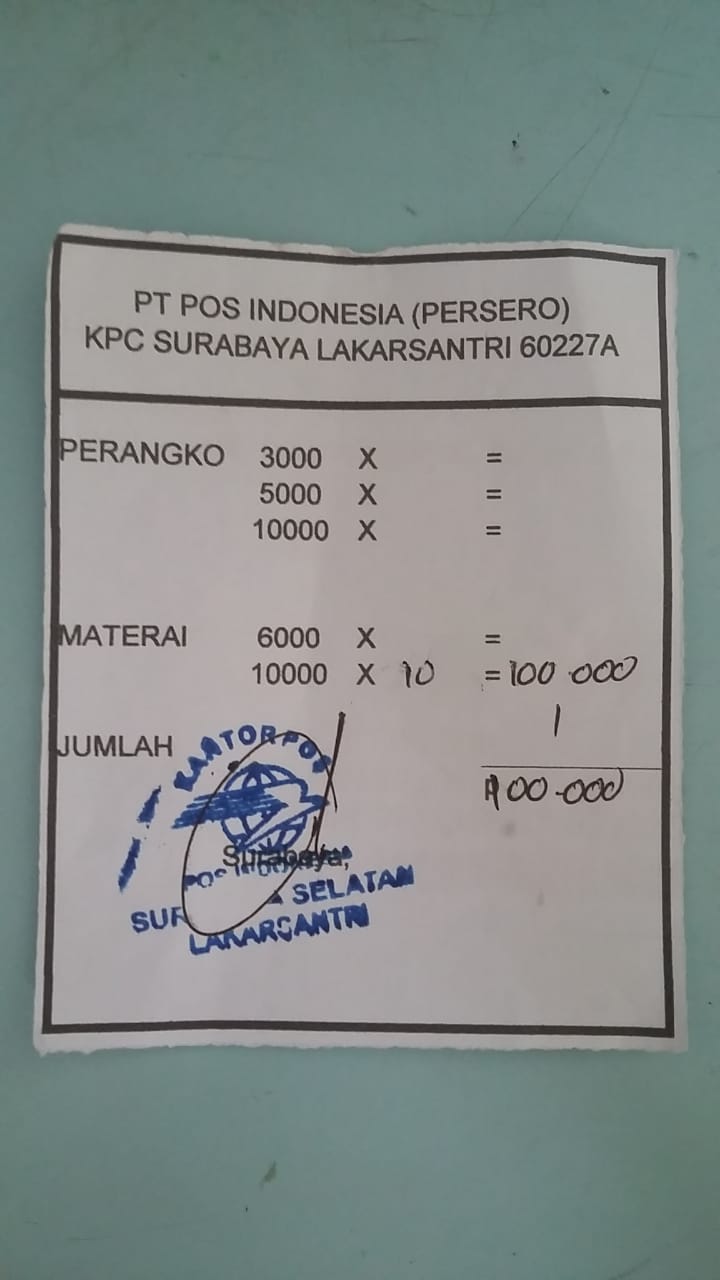 PT POS INDONESIA (PERSERO)
KPC SURABAYA LAKARSANTRI 60227A
PERANGKO 3000 X =
5000 X =
10000 X =
MATERAI 6000 X =
10000 X 10 = 100 000
JUMLAH
100.000
KANTORPOS
Surabaya,
POS
SELATAN
LAKARSANTRI